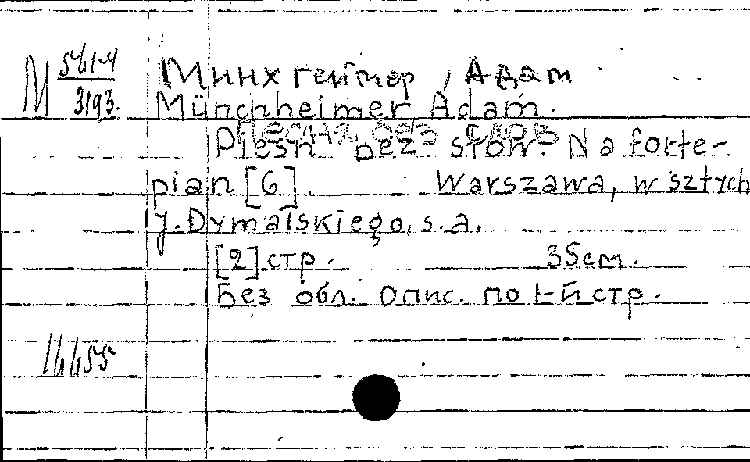 М 561-4
3193.
Минхгеймер, Адам.
Münchheimer Adam.
Песня без слов
Pieśń bez słów. Na forte-
pian [6]. Warszawa, w sztych
J. Dymalskiego, s.a.
[2] стр. 35см.
Без обл. Опис. по 1-й стр.
16655